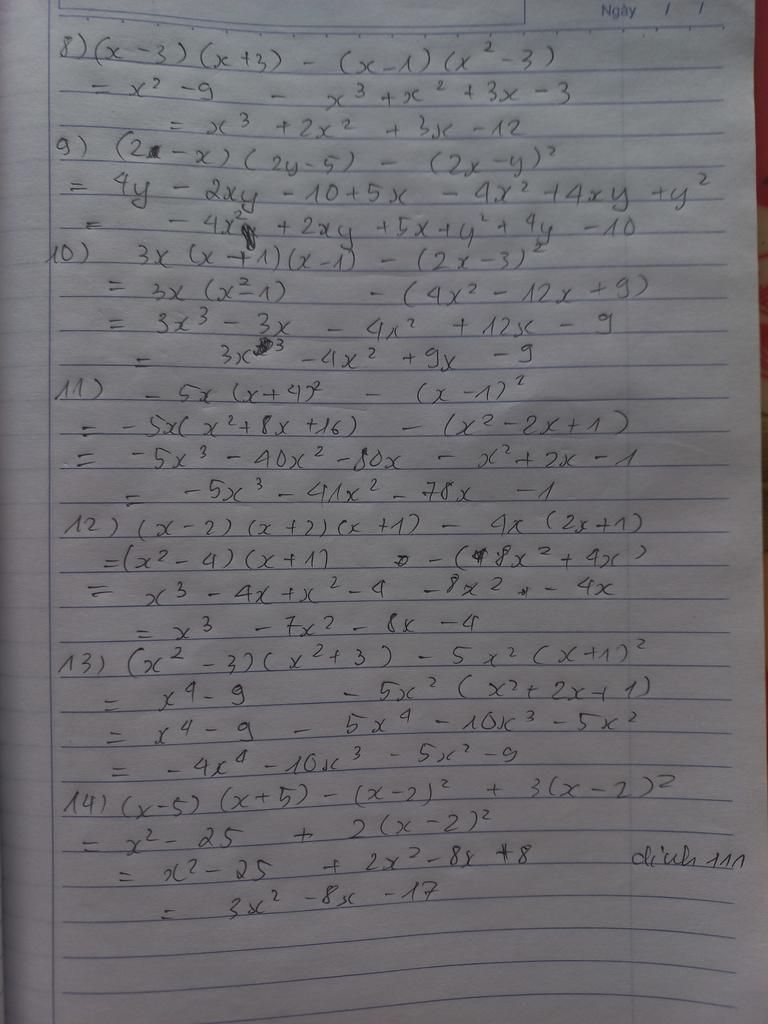 Ngày / /
8) (x - 3) (x + 3) - (x - 1) (x² - 3)
= x² - 9 - x³ + x² + 3x - 3
= x³ + 2x² + 3x - 12
9) (2 - x) (2y - 5) - (2x - y)²
= 4y - 2xy - 10 + 5x - 4x² + 4xy + y²
= - 4x² + 2xy + 5x + y² + 4y - 10
10) 3x (x + 1) (x - 1) - (2x - 3)²
= 3x (x² - 1) - (4x² - 12x + 9)
= 3x³ - 3x - 4x² + 12x - 9
= 3x³ - 4x² + 9x - 9
11) - 5x (x + 4)² - (x - 1)²
= - 5x( x² + 8x + 16) - (x² - 2x + 1)
= - 5x³ - 40x² - 80x - x² + 2x - 1
= - 5x³ - 41x² - 78x - 1
12) (x - 2) (x + 2) (x + 1) - 4x (2x + 1)
= (x² - 4) (x + 1) - (8x² + 4x)
= x³ - 4x + x² - 4 - 8x² - 4x
= x³ - 7x² - 8x - 4
13) (x² - 3) (x² + 3) - 5x² (x + 1)²
= x⁴ - 9 - 5x² (x² + 2x + 1)
= x⁴ - 9 - 5x⁴ - 10x³ - 5x²
= - 4x⁴ - 10x³ - 5x² - 9
14) (x - 5) (x + 5) - (x - 2)² + 3(x - 2)²
= x² - 25 + 2(x - 2)²
= x² - 25 + 2x² - 8x + 8 dinh 111
= 3x² - 8x - 17